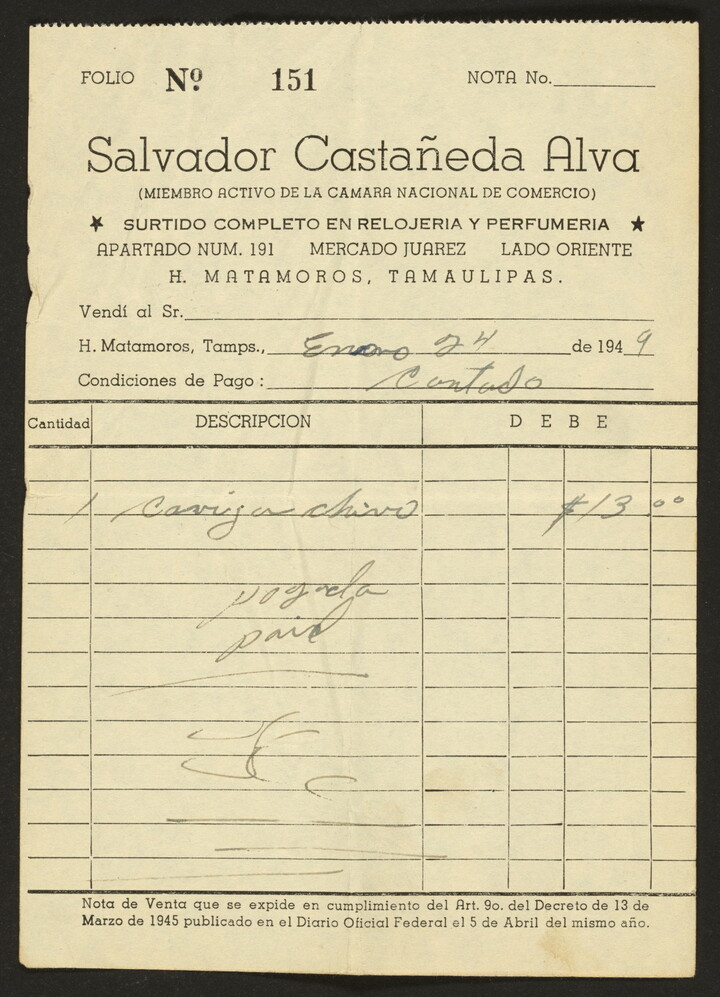 FOLIO Nº 151 NOTA No.
Salvador Castañeda Alva
(MIEMBRO ACTIVO DE LA CAMARA NACIONAL DE COMERCIO)
★ SURTIDO COMPLETO EN RELOJERIA Y PERFUMERIA ★
APARTADO NUM. 191 MERCADO JUAREZ LADO ORIENTE
H. MATAMOROS, TAMAULIPAS.
Vendí al Sr.
H. Matamoros, Tamps., Enero 24 de 1949
Condiciones de Pago: Contado
Cantidad DESCRIPCION DEBE
1 $13.00
pagada
paid
Nota de Venta que se expide en cumplimiento del Art. 9o. del Decreto de 13 de
Marzo de 1945 publicado en el Diario Oficial Federal el 5 de Abril del mismo año.